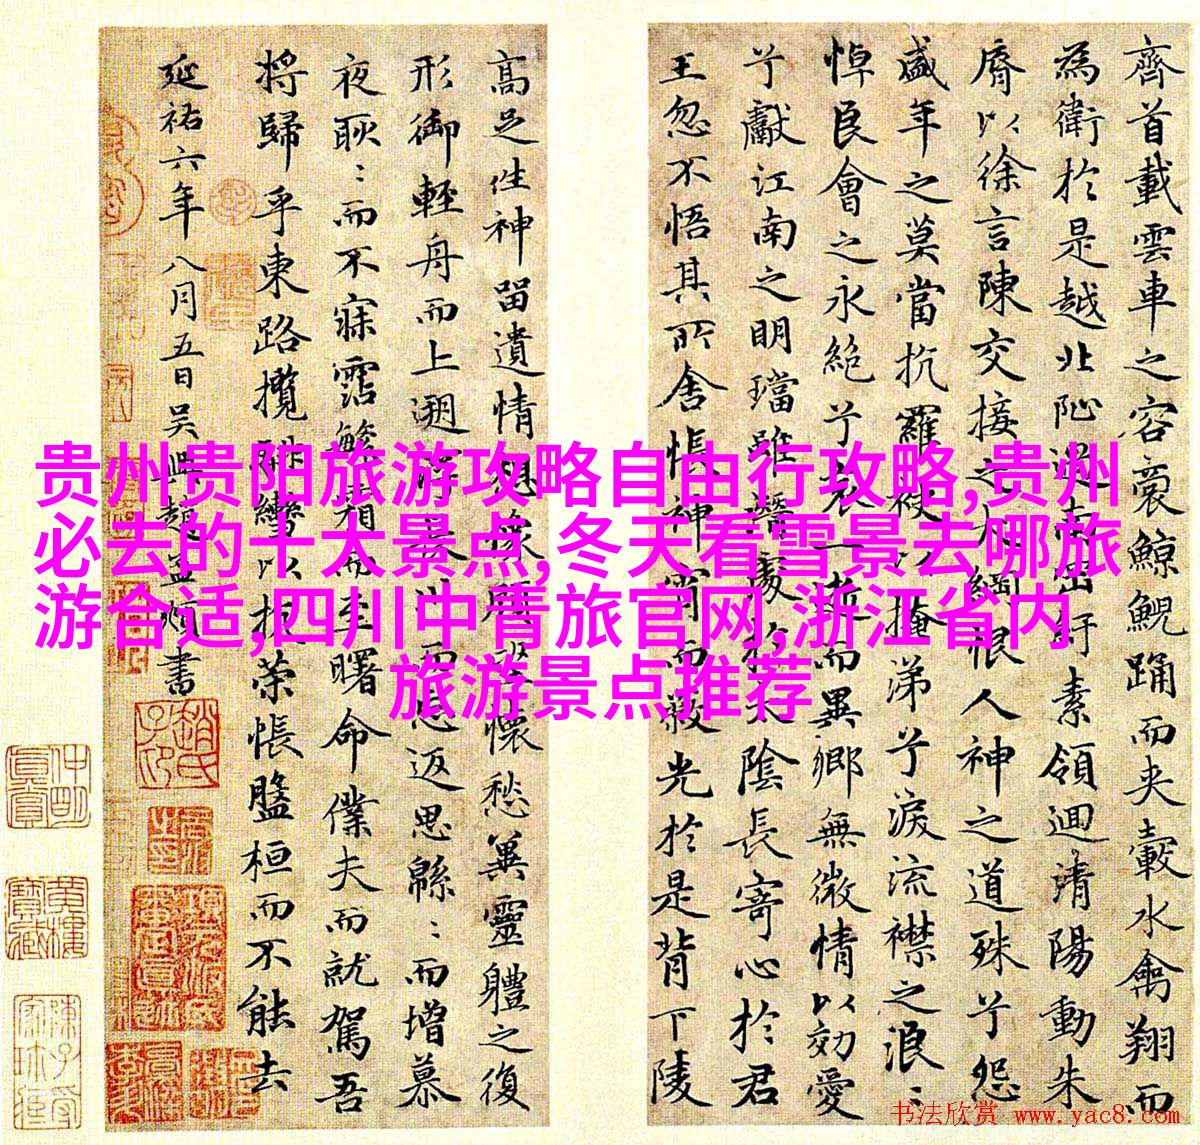 齊首載雲車之容裔鯨鯢踊而夾轂水禽翔而
為衛於是越北沚過南岡紆素領迴清陽動朱
脣以徐言陳交接之大綱恨人神之道殊兮怨
盛年之莫當抗羅袂以掩涕兮淚流襟之浪〻
悼良會之永絕兮哀一逝而異鄉無微情以効愛
兮獻江南之明璫雖潛處於太陰長寄心於君
王忽不悟其所舍悵神宵而蔽光於是背下陵
高足性神留遺情想像顧望懷愁冀靈體之復
形御輕舟而上遡浮長川而忘返思緜〻而增慕
夜耿〻而不寐霑繁霜而至曙命僕夫而就駕吾
將歸乎東路攬騑轡以抗策悵盤桓而不能去
延祐六年八月五日吳興趙孟頫書
贵州贵阳旅游攻略自由行攻略,贵州
必去的十大景点,冬天看雪景去哪旅
游合适,四川中青旅官网,浙江省内
旅游景点推荐
书法欣赏 www.yac8.com